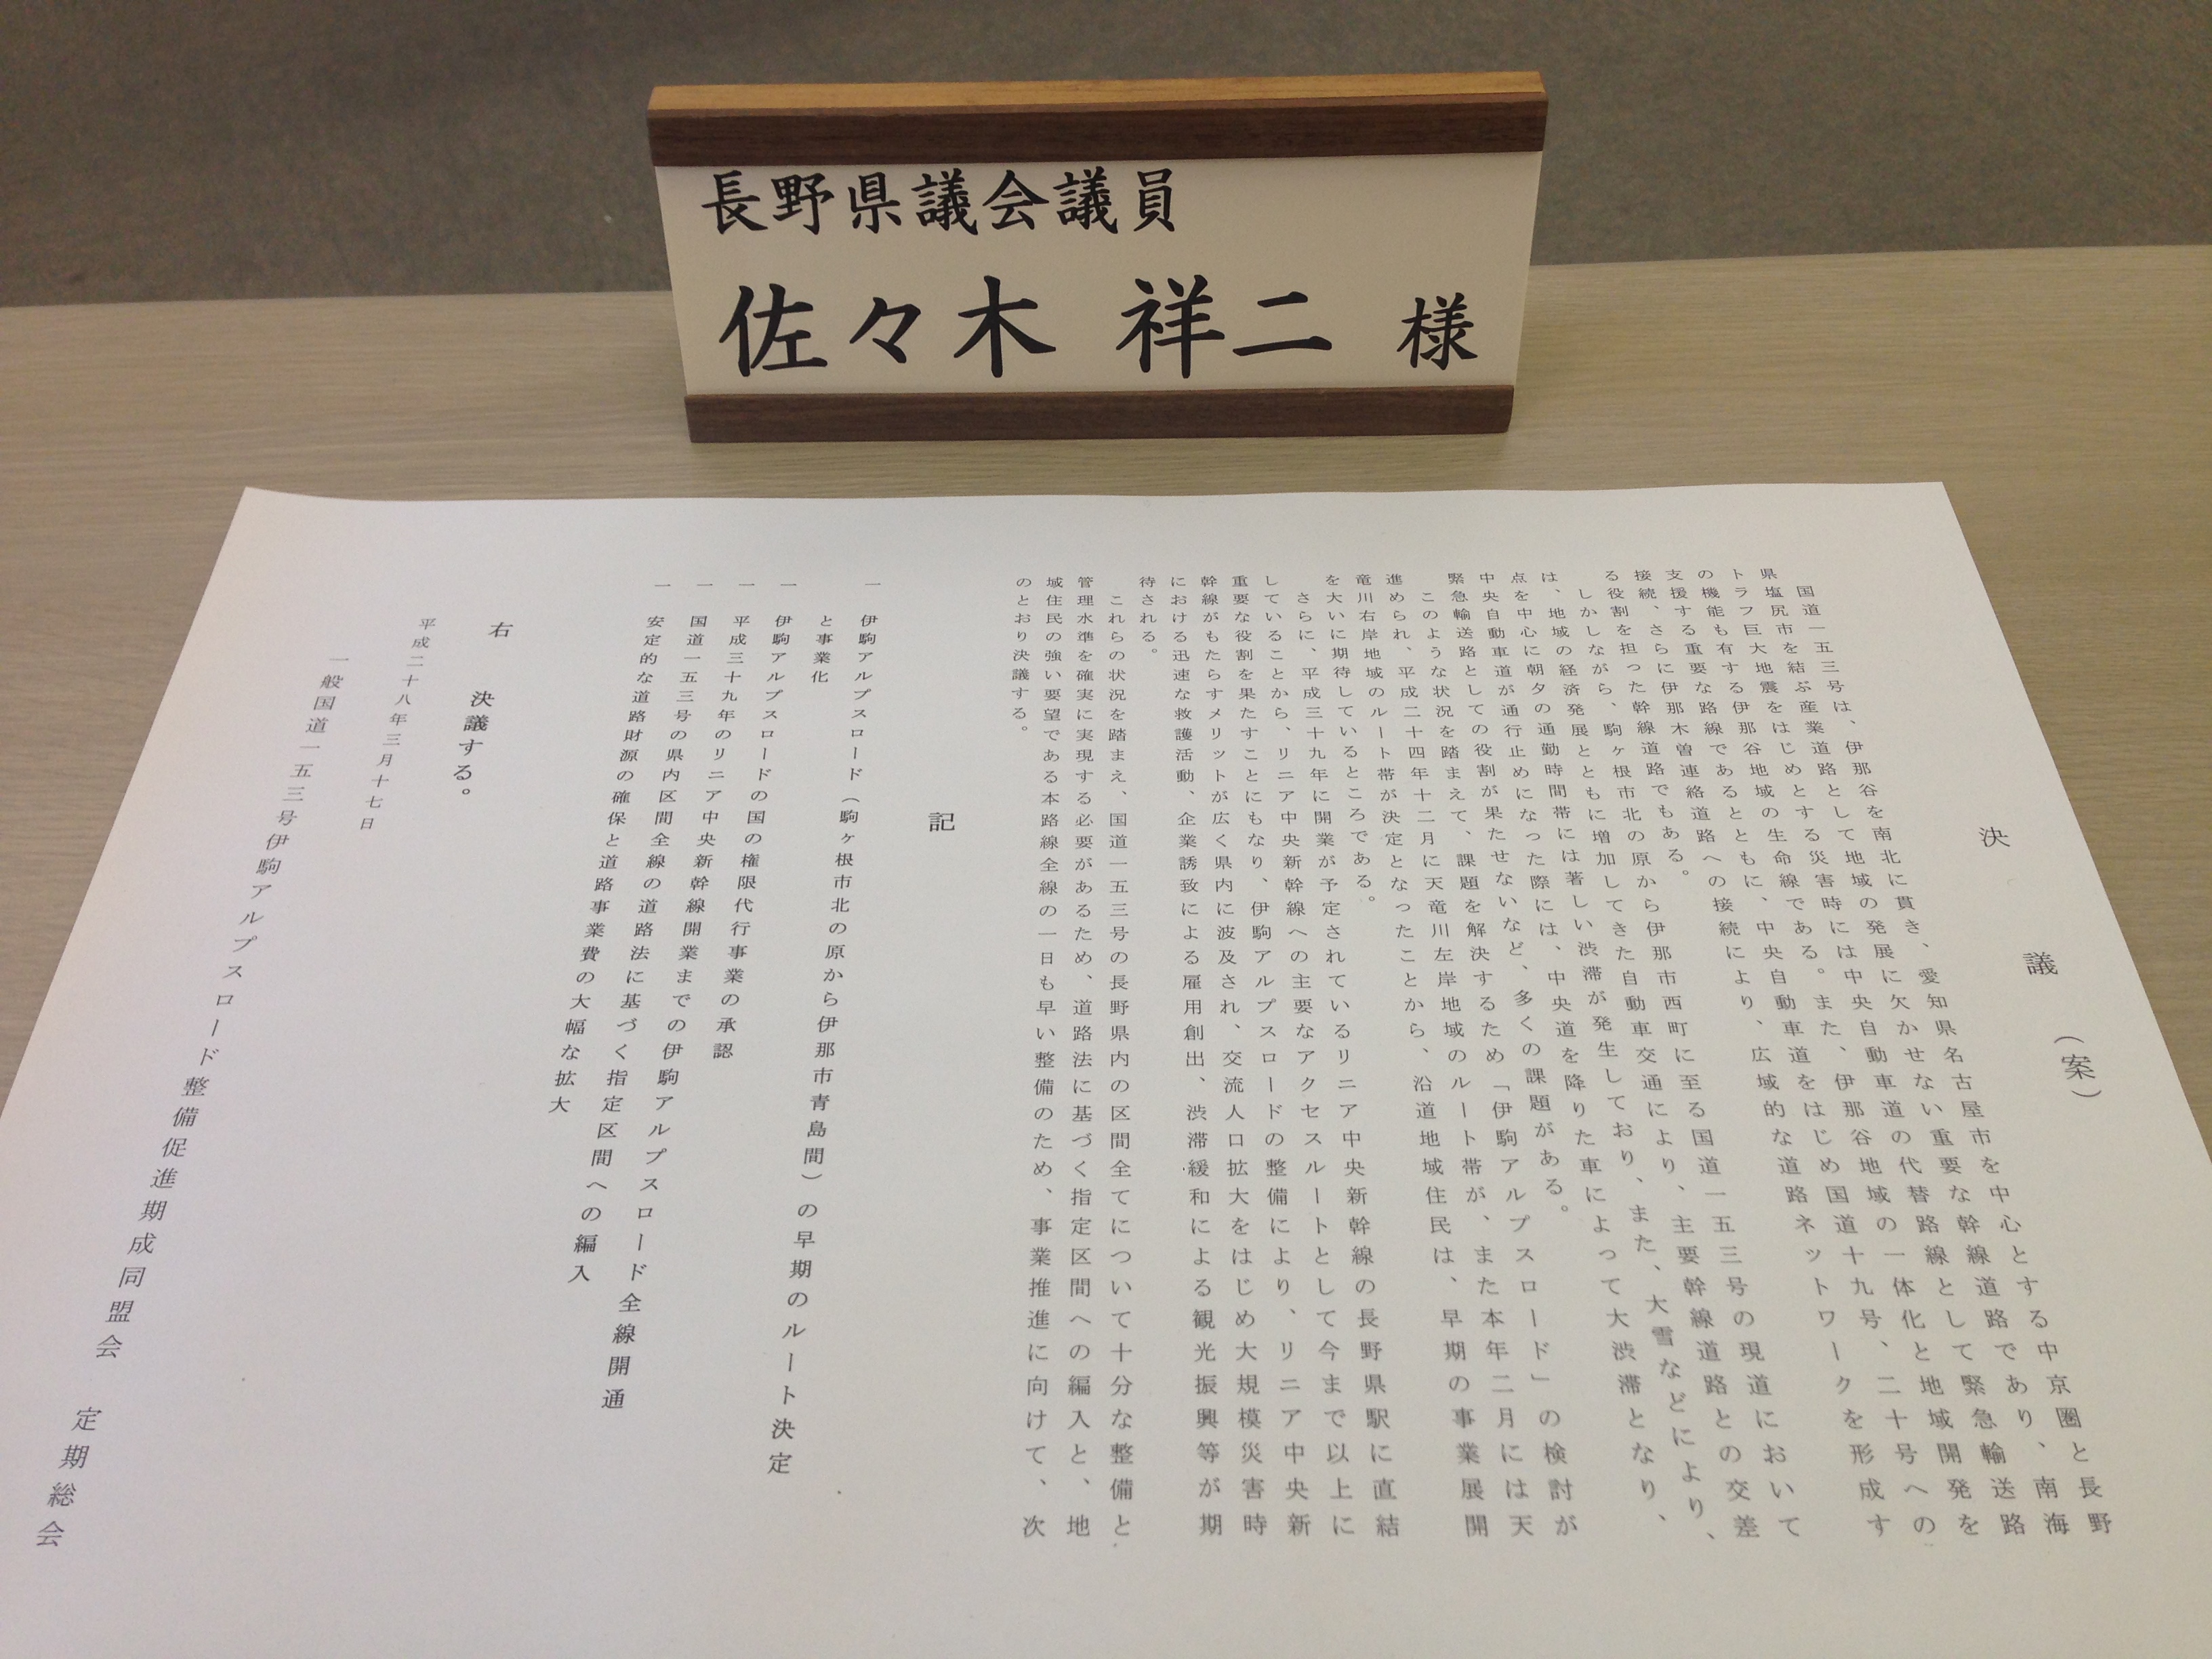 長野県議会議員
佐々木 祥二 様
決議(案)
国道一五三号は、伊那谷を南北に貫き、愛知県名古屋市を中心とする中京圏と長野
県塩尻市を結ぶ産業道路として地域の発展に欠かせない重要な幹線道路であり、南海
トラフ巨大地震をはじめとする災害時には中央自動車道の代替路線として緊急輸送路
の機能も有する伊那谷地域の生命線である。また、伊那谷地域の一体化と地域開発を
支援する重要な路線であるとともに、中央自動車道をはじめ国道十九号、二十号への
接続、さらに伊那木曽連絡道路への接続により、広域的な道路ネットワークを形成す
る役割を担った幹線道路でもある。
しかしながら、駒ヶ根市北の原から伊那市西町に至る国道一五三号の現道において
は、地域の経済発展とともに増加してきた自動車交通により、主要幹線道路との交差
点を中心に朝夕の通勤時間帯には著しい渋滞が発生しており、また、大雪などにより、
中央自動車道が通行止めになった際には、中央道を降りた車によって大渋滞となり、
緊急輸送路としての役割が果たせないなど、多くの課題がある。
このような状況を踏まえて、課題を解決するため「伊駒アルプスロード」の検討が
進められ、平成二十四年十二月に天竜川左岸地域のルート帯が、また本年二月には天
竜川右岸地域のルート帯が決定となったことから、沿道地域住民は、早期の事業展開
を大いに期待しているところである。
さらに、平成三十九年に開業が予定されているリニア中央新幹線の長野県駅に直結
していることから、リニア中央新幹線への主要なアクセスルートとして今まで以上に
重要な役割を果たすことにもなり、伊駒アルプスロードの整備により、リニア中央新
幹線がもたらすメリットが広く県内に波及され、交流人口拡大をはじめ大規模災害時
における迅速な救護活動、企業誘致による雇用創出、渋滞緩和による観光振興等が期
待される。
これらの状況を踏まえ、国道一五三号の長野県内の区間全てについて十分な整備と
管理水準を確実に実現する必要があるため、道路法に基づく指定区間への編入と、地
域住民の強い要望である本路線全線の一日も早い整備のため、事業推進に向けて、次
のとおり決議する。
記
一 伊駒アルプスロード(駒ヶ根市北の原から伊那市青島間)の早期のルート決定
と事業化
一 伊駒アルプスロードの国の権限代行事業の承認
一 平成三十九年のリニア中央新幹線開業までの伊駒アルプスロード全線開通
一 国道一五三号の県内区間全線の道路法に基づく指定区間への編入
一 安定的な道路財源の確保と道路事業費の大幅な拡大
右 決議する。
平成二十八年三月十七日
一般国道一五三号伊駒アルプスロード整備促進期成同盟会 定期総会